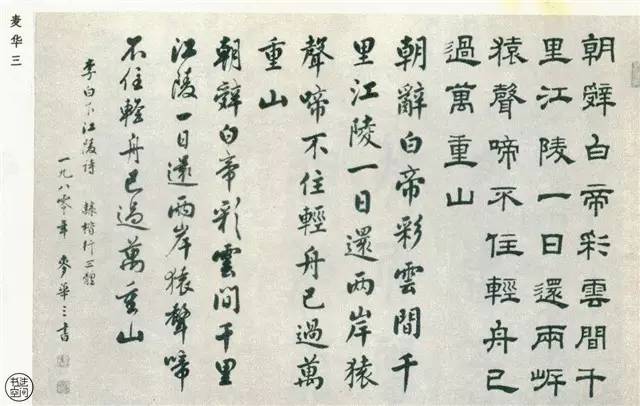 朝辤白帝彩雲間千
里江陵一日還兩岸
猿聲啼不住輕舟已
過萬重山
朝辭白帝彩雲間千
里江陵一日還兩岸猿
聲啼不住輕舟已過萬
重山
朝辤白帝彩雲間千里
江陵一日還兩岸猿聲啼
不住輕舟已過萬重山
李白下江陵詩 隸楷行三體
一九八零年 麥華三書
麦华三
书法
空间